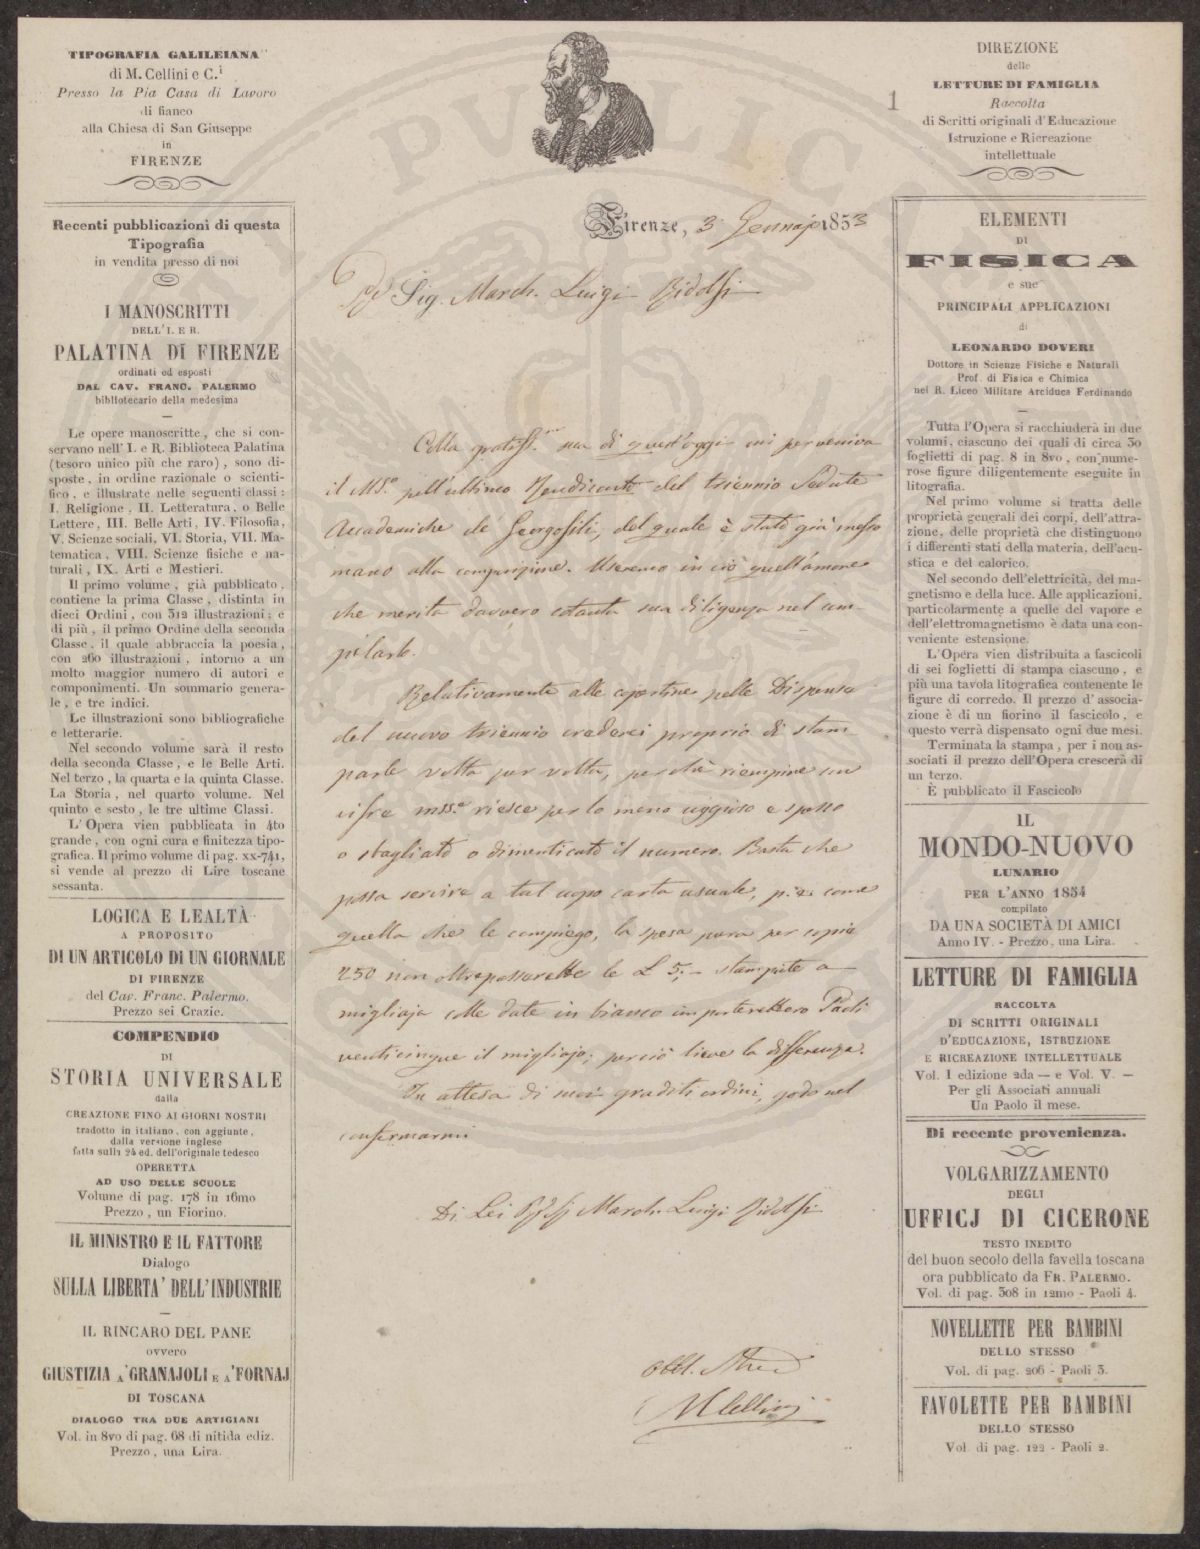 TIPOGRAFIA GALILEIANA
di M. Cellini e C.i
Presso la Pia Casa di Lavoro
di fianco
alla Chiesa di San Giuseppe
in
FIRENZE
Recenti pubblicazioni di questa
Tipografia
in vendita presso di noi
I MANOSCRITTI
DELL'I. E R.
PALATINA DI FIRENZE
ordinati ed esposti
DAL CAV. FRANC. PALERMO
bibliotecario della medesima
Le opere manoscritte, che si con-
servano nell' I. e R. Biblioteca Palatina
(tesoro unico più che raro), sono di-
sposte, in ordine razionale o scienti-
fico, e illustrate nelle seguenti classi:
I. Religione, II. Letteratura, o Belle
Lettere, III. Belle Arti, IV. Filosofia,
V. Scienze sociali, VI. Storia, VII. Ma-
tematica, VIII. Scienze fisiche e na-
turali, IX. Arti e Mestieri.
Il primo volume, già pubblicato,
contiene la prima Classe, distinta in
dieci Ordini, con 312 illustrazioni; e
di più, il primo Ordine della seconda
Classe, il quale abbraccia la poesia,
con 260 illustrazioni, intorno a un
molto maggior numero di autori e
componimenti. Un sommario genera-
le, e tre indici.
Le illustrazioni sono bibliografiche
e letterarie.
Nel secondo volume sarà il resto
della seconda Classe, e le Belle Arti.
Nel terzo, la quarta e la quinta Classe.
La Storia, nel quarto volume. Nel
quinto e sesto, le tre ultime Classi.
L'Opera vien pubblicata in 4to
grande, con ogni cura e finitezza tipo-
grafica. Il primo volume di pag. xx-741,
si vende al prezzo di Lire toscane
sessanta.
LOGICA E LEALTÀ
A PROPOSITO
DI UN ARTICOLO DI UN GIORNALE
DI FIRENZE
del Cav. Franc. Palermo.
Prezzo sei Crazie.
COMPENDIO
DI
STORIA UNIVERSALE
dalla
CREAZIONE FINO AI GIORNI NOSTRI
tradotto in italiano, con aggiunte,
dalla versione inglese
fatta sulla 24 ed. dell'originale tedesco
OPERETTA
AD USO DELLE SCUOLE
Volume di pag. 178 in 16mo
Prezzo, un Fiorino.
IL MINISTRO E IL FATTORE
Dialogo
SULLA LIBERTA' DELL'INDUSTRIE
IL RINCARO DEL PANE
ovvero
GIUSTIZIA A 'GRANAJOLI E A 'FORNAJ
DI TOSCANA
DIALOGO TRA DUE ARTIGIANI
Vol. in 8vo di pag. 68 di nitida ediz.
Prezzo, una Lira.
PUBLICA
Firenze, 3 Gennajo 1853
Sig. March. Luigi Ridolfi
Colla gratiss. sua di quest'oggi mi perveniva
il Ms.o pell'ultimo Rendiconto del triennio Sedute
Accademiche de Georgofili, del quale è stato già messo
mano alla composizione. Useremo in ciò quell'amore
che merita davvero cotanta sua diligenza nel com-
pilarlo.
Relativamente alle copertine pelle Dispense
del nuovo triennio crederei proprio di stam-
parle volta per volta, perchè riempirne con
cifre mss.e riesce per lo meno uggioso e spesso
o sbagliato o dimenticato il numero. Basta che
possa servire a tal uopo carta usuale, p. e. come
quella che le compiego, la spesa pura per copie
250 non oltrepasserebbe le L 5;- stampate a
migliaja colle date in bianco importerebbero Paoli
venticinque il migliajo; perciò lieve la differenza.
In attesa di suoi graditi ordini, godo nel
confermarmi
Di Lei March. Luigi Ridolfi
Obbl.
M Cellini
1
DIREZIONE
delle
LETTURE DI FAMIGLIA
Raccolta
di Scritti originali d'Educazione
Istruzione e Ricreazione
intellettuale
ELEMENTI
DI
FISICA
e sue
PRINCIPALI APPLICAZIONI
di
LEONARDO DOVERI
Dottore in Scienze Fisiche e Naturali
Prof. di Fisica e Chimica
nel R. Liceo Militare Arciduca Ferdinando
Tutta l'Opera si racchiuderà in due
volumi, ciascuno dei quali di circa 30
foglietti di pag. 8 in 8vo, con nume-
rose figure diligentemente eseguite in
litografia.
Nel primo volume si tratta delle
proprietà generali dei corpi, dell'attra-
zione, delle proprietà che distinguono
i differenti stati della materia, dell'acu-
stica e del calorico.
Nel secondo dell'elettricità, del ma-
gnetismo e della luce. Alle applicazioni,
particolarmente a quelle del vapore e
dell'elettromagnetismo è data una con-
veniente estensione.
L'Opera vien distribuita a fascicoli
di sei foglietti di stampa ciascuno, e
più una tavola litografica contenente le
figure di corredo. Il prezzo d'associa-
zione è di un fiorino il fascicolo, e
questo verrà dispensato ogni due mesi.
Terminata la stampa, per i non as-
sociati il prezzo dell'Opera crescerà di
un terzo.
È pubblicato il Fascicolo
IL
MONDO-NUOVO
LUNARIO
PER L'ANNO 1854
compilato
DA UNA SOCIETÀ DI AMICI
Anno IV. - Prezzo, una Lira.
LETTURE DI FAMIGLIA
RACCOLTA
DI SCRITTI ORIGINALI
D'EDUCAZIONE, ISTRUZIONE
E RICREAZIONE INTELLETTUALE
Vol. I edizione 2da — e Vol. V. —
Per gli Associati annuali
Un Paolo il mese.
Di recente provenienza.
VOLGARIZZAMENTO
DEGLI
UFFICJ DI CICERONE
TESTO INEDITO
del buon secolo della favella toscana
ora pubblicato da FR. PALERMO.
Vol. di pag. 308 in 12mo - Paoli 4.
NOVELLETTE PER BAMBINI
DELLO STESSO
Vol. di pag. 206 - Paoli 3.
FAVOLETTE PER BAMBINI
DELLO STESSO
Vol. di pag. 122 - Paoli 2.